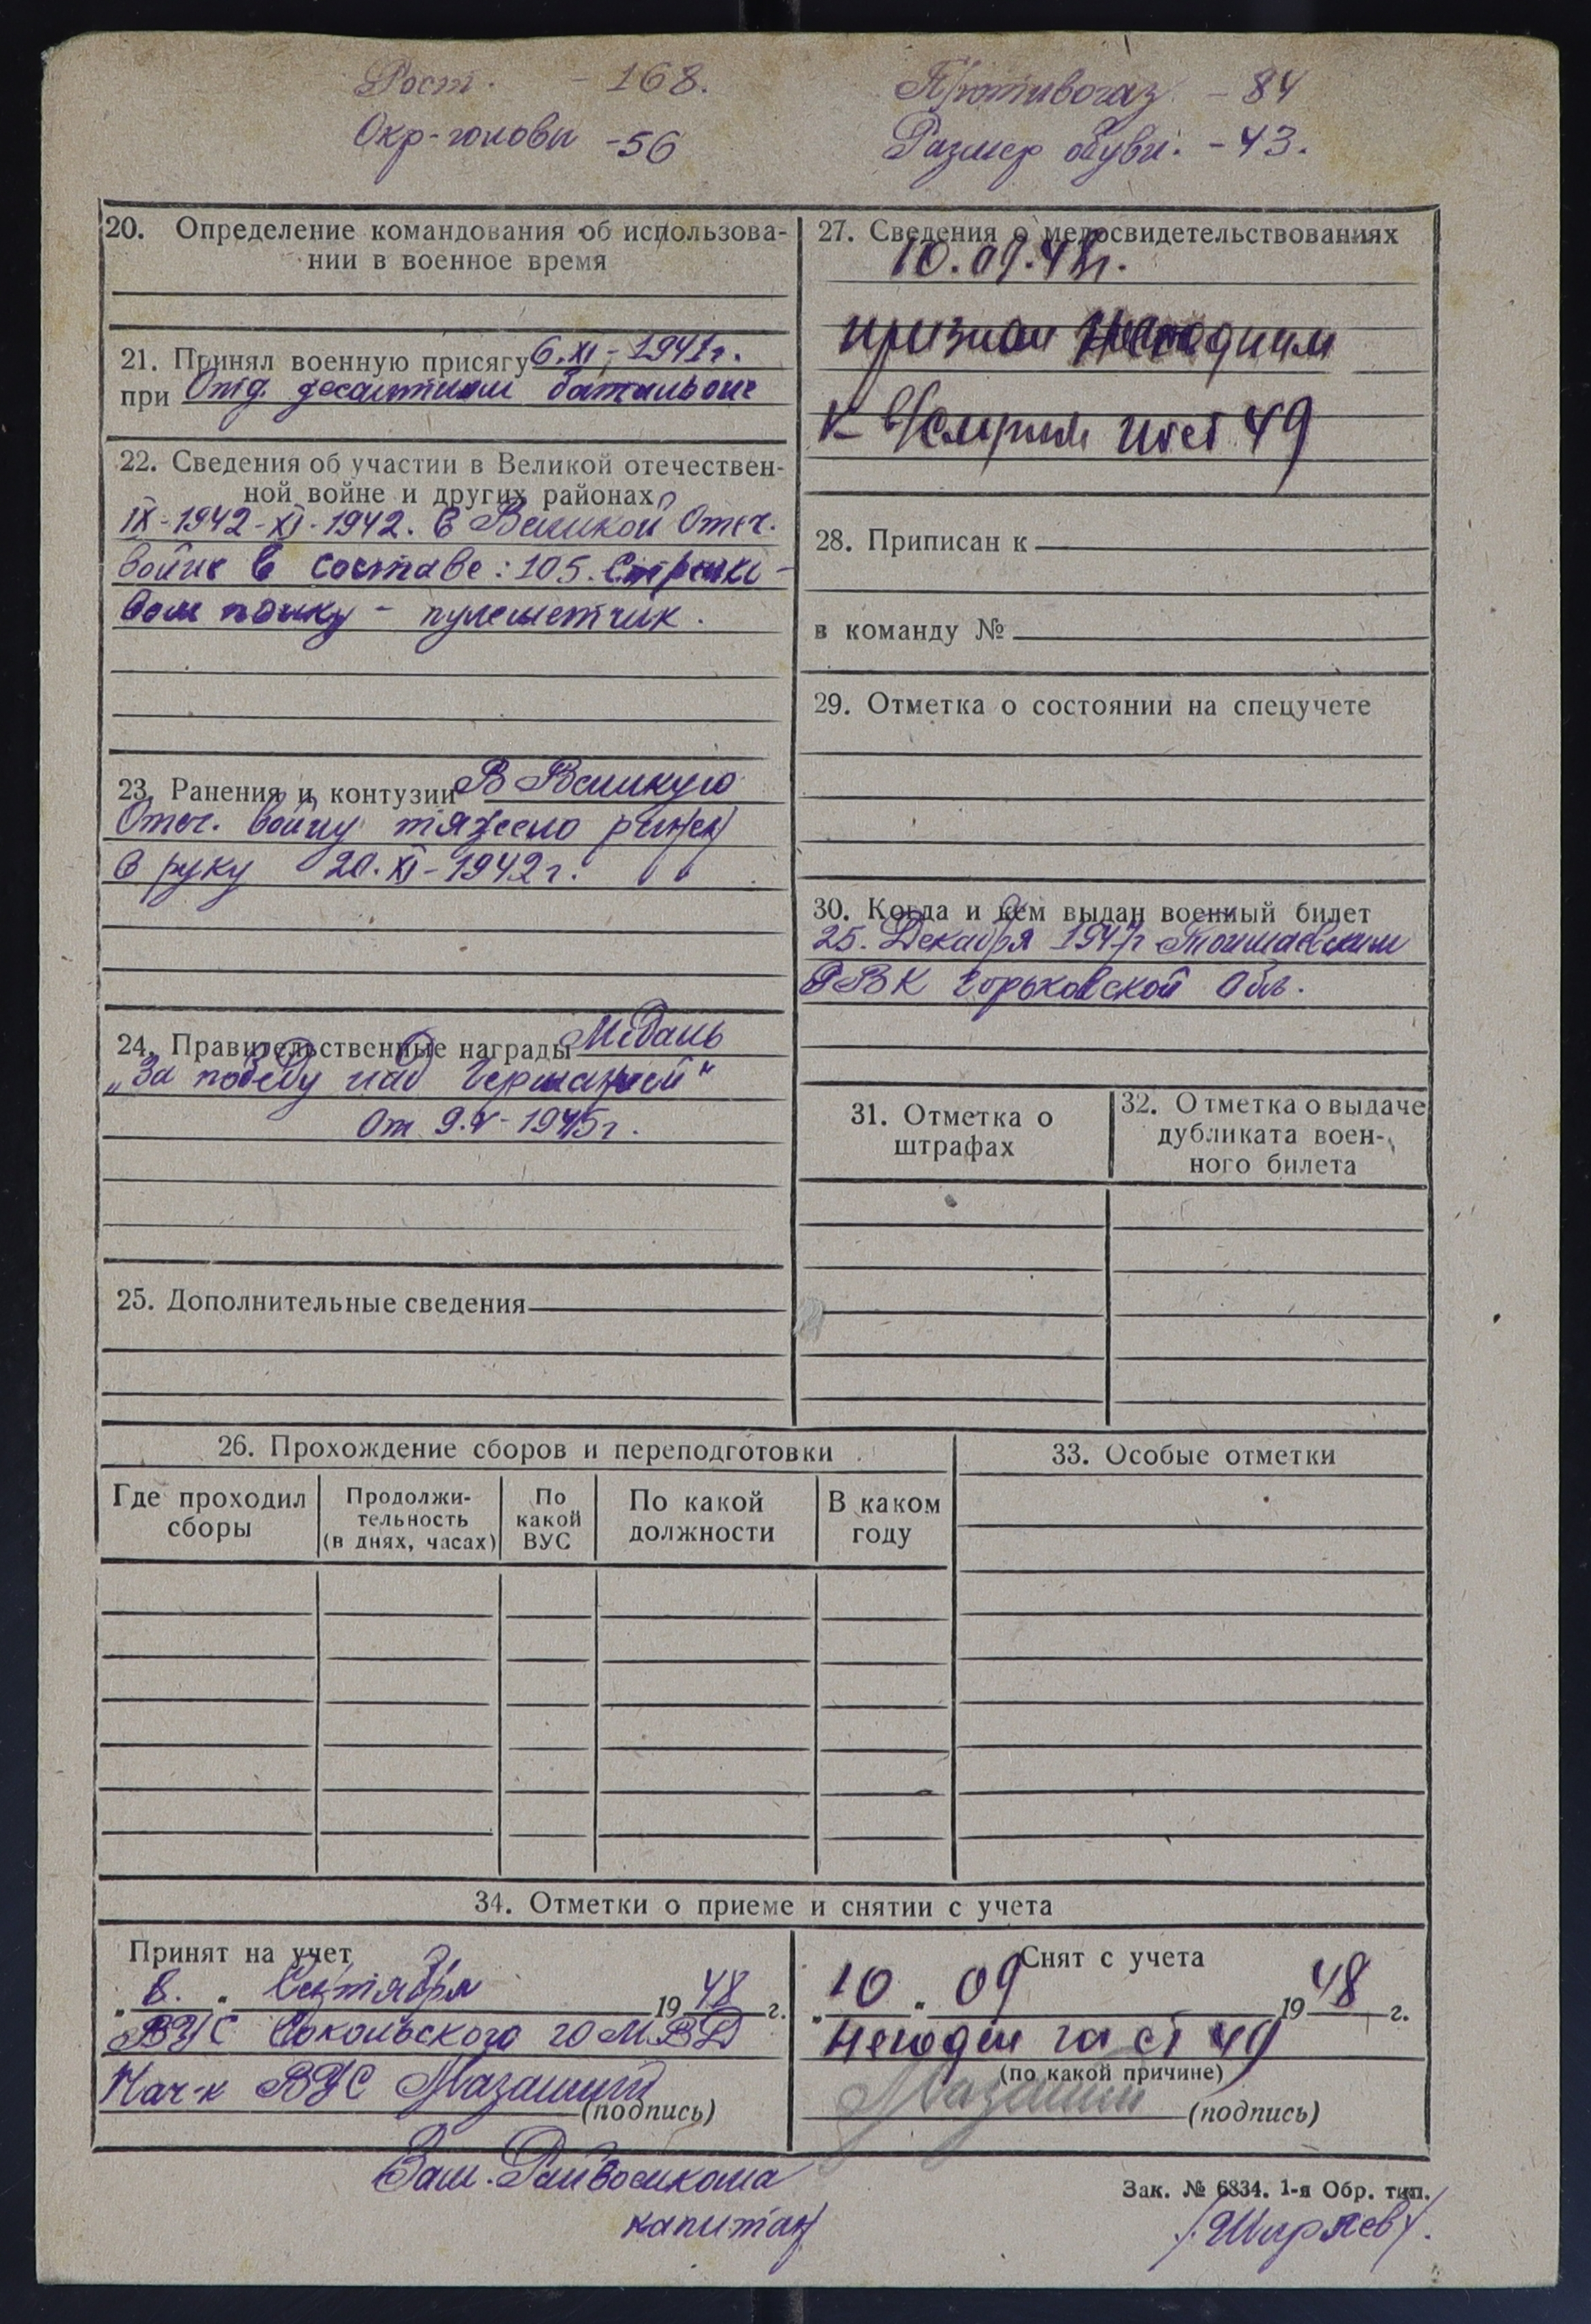 Рост. - 168.
Окр-головы -56
Противогаз - 84
Размер обуви. - 43.
20. Определение командования об использова-
нии в военное время
21. Принял военную присягу 6.XI - 1941г.
при Отд. десантном батальоне
22. Сведения об участии в Великой отечествен-
ной войне и других районах
IX-1942-XI-1942. в Великой Отеч.
войне в составе: 105. Стрелко-
вом полку - пулеметчик.
23. Ранения и контузии В Великую
Отеч. войну тяжело ранен
в руку 20.XI-1942г.
24. Правительственные награды Медаль
„За победу над Германией"
от 9.V-1945г.
25. Дополнительные сведения
27. Сведения о медосвидетельствованиях
10.09.48г.
признан негодным
к в/службе ст 49
28. Приписан к
в команду №
29. Отметка о состоянии на спецучете
30. Когда и кем выдан военный билет
25. Декабря 1947г Тоншаевским
РВК Горьковской обл.
31. Отметка о
штрафах
32. Отметка о выдаче
дубликата воен-
ного билета
26. Прохождение сборов и переподготовки
Где проходил
сборы
Продолжи-
тельность
(в днях, часах)
По
какой
ВУС
По какой
должности
В каком
году
33. Особые отметки
34. Отметки о приеме и снятии с учета
Принят на учет
„8." Сентября 1948 г.
ВУС Сокольского ГОМВД
Нач-к ВУС
(подпись)
Снят с учета
„10" 09 1948 г.
Негоден ст 49
(по какой причине)
(подпись)
Зам. Райвоенкома
капитан
Зак. № 6834. 1-я Обр. тип.
/Ширяев/.